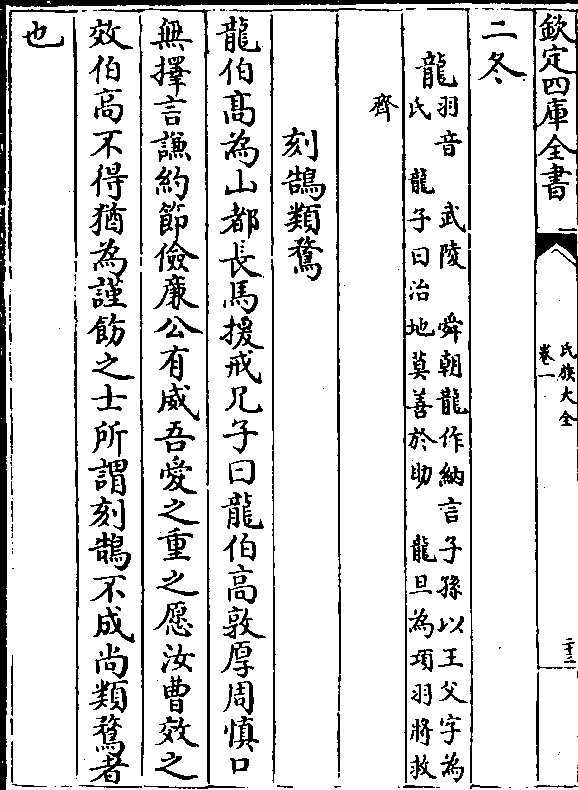 欽定四庫全書
氏族大全
卷一
二十二
二冬
龍羽音　武陵　舜朝龍作納言子孫以王父字為
氏　龍子曰治地莫善於助　龍且為項羽將救
齊
刻鵠類鶩
龍伯髙為山都長馬援戒兄子曰龍伯高敦厚周慎口
無擇言謙約節儉廉公有威吾愛之重之愿汝曹效之
效伯高不得猶為謹飭之士所謂刻鵠不成尚類鶩者
也